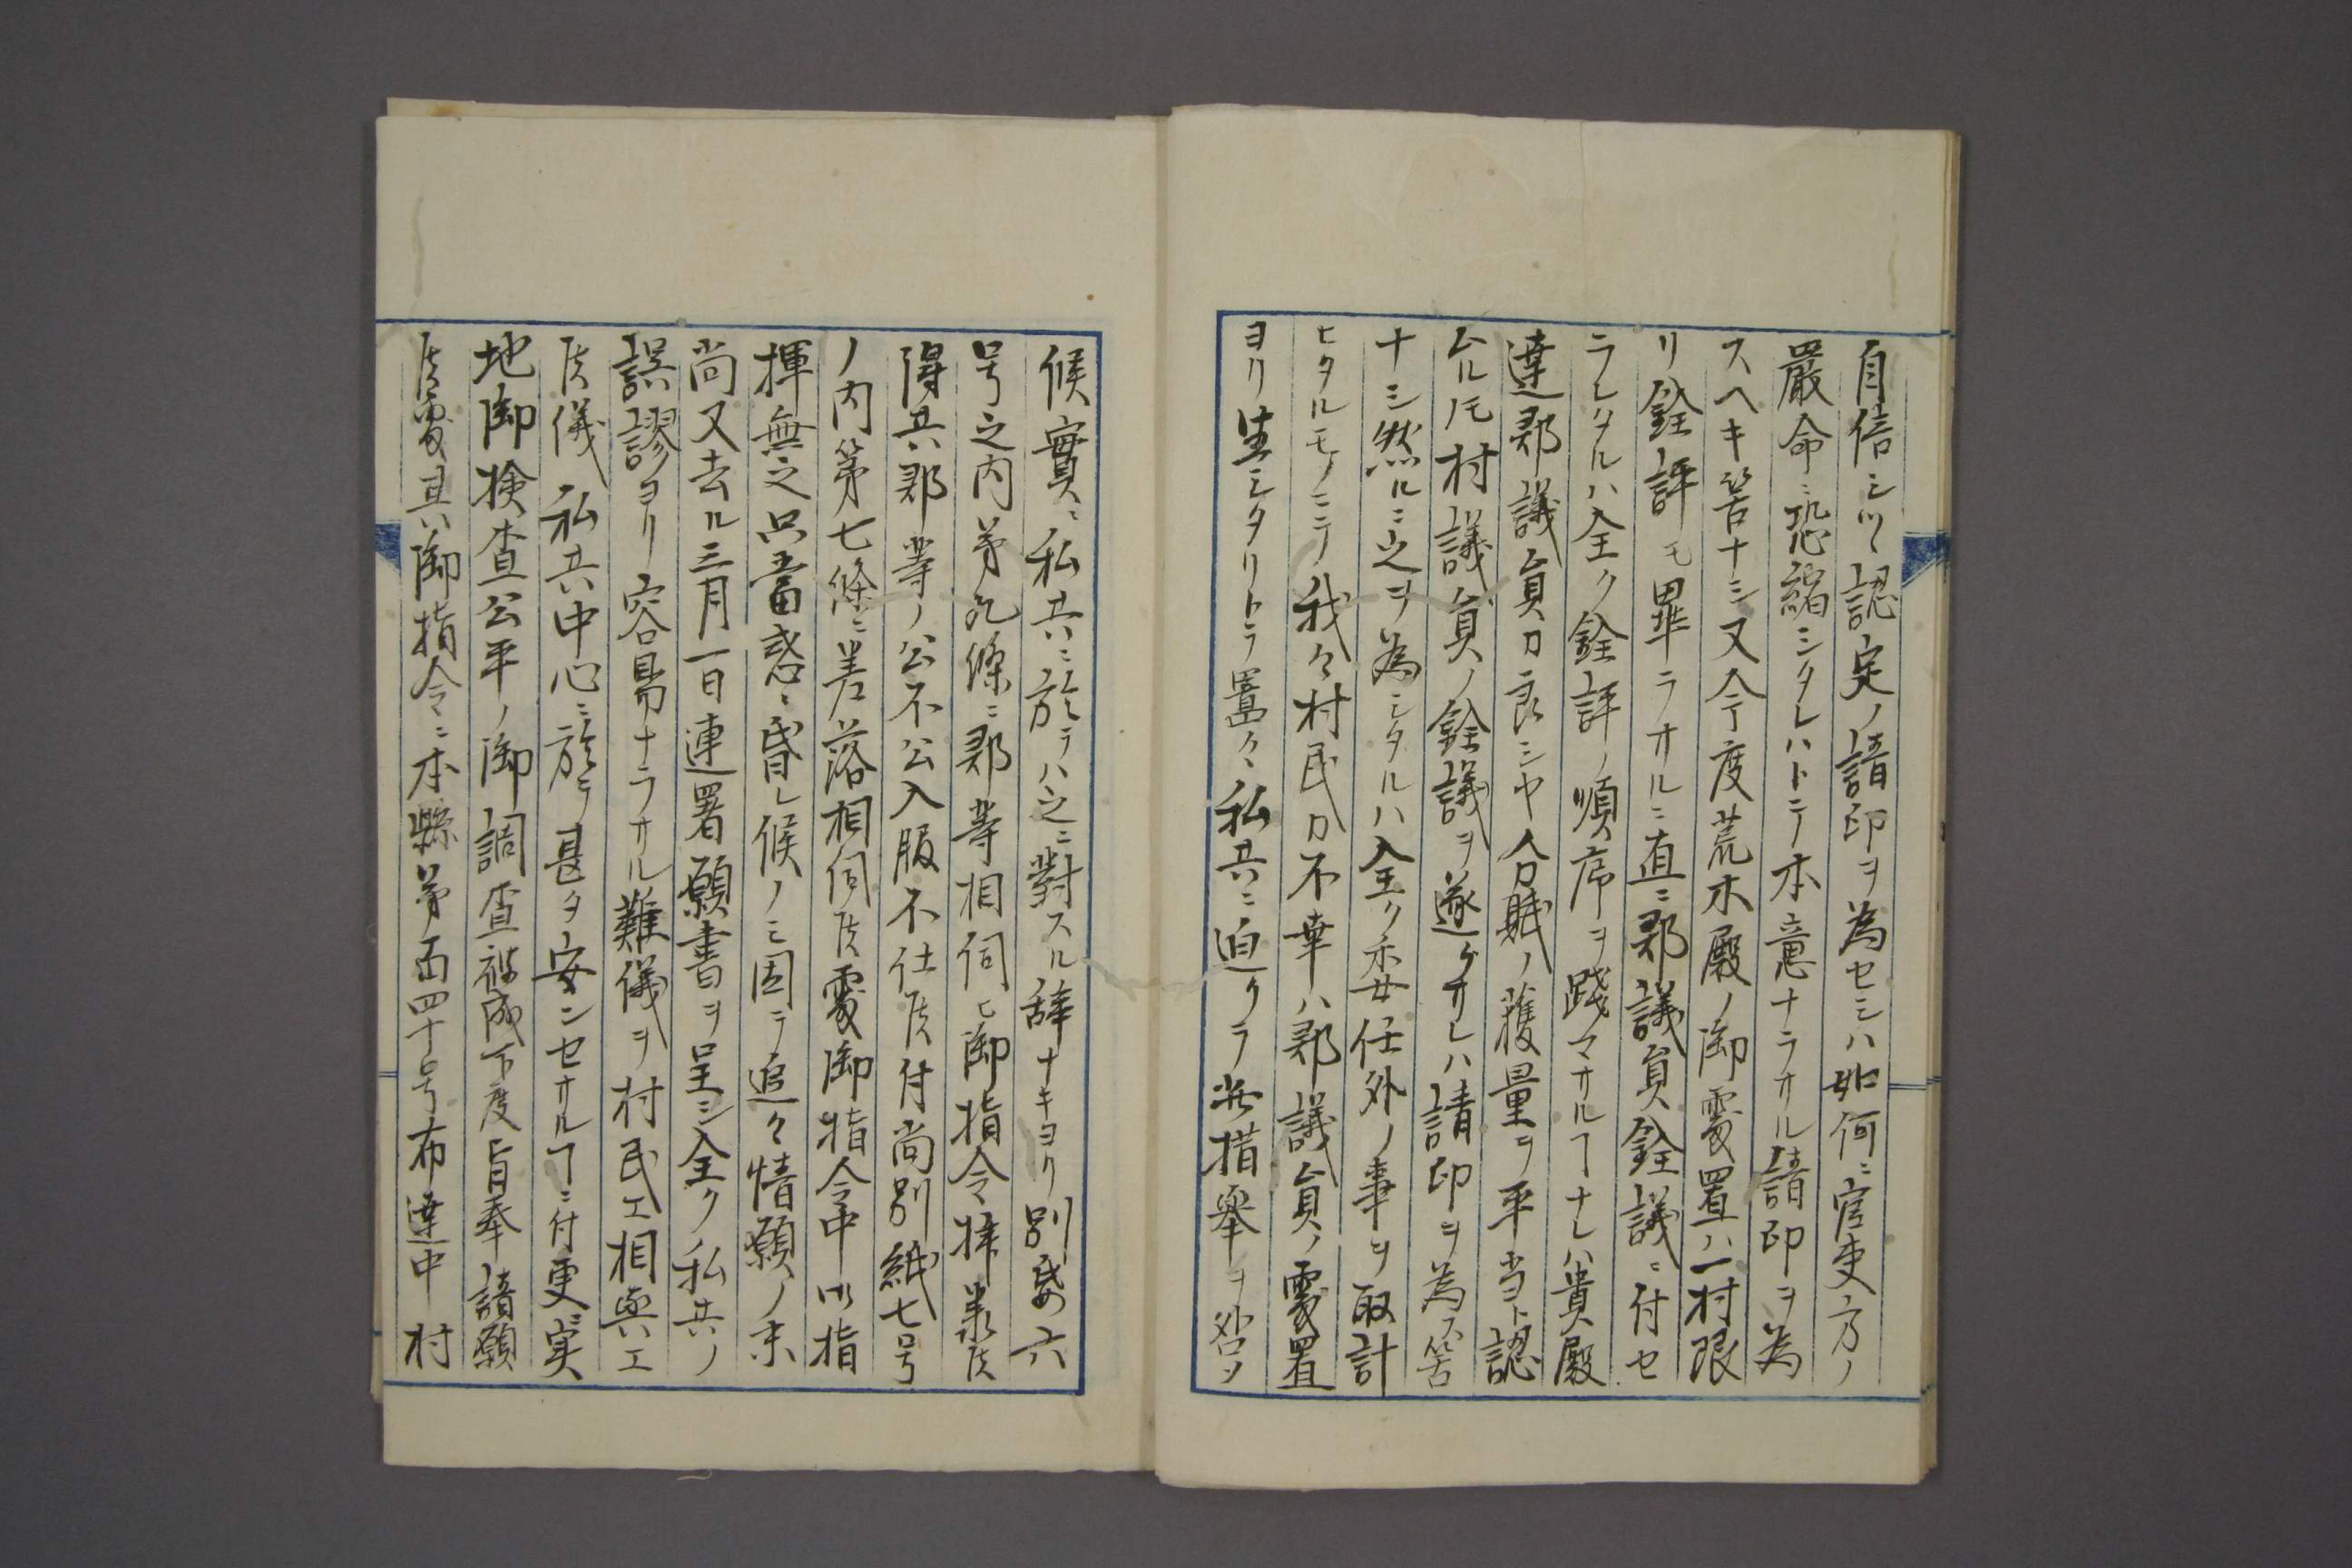 自信シツヽ認定ノ請印ヲ為セシハ如何ニ官吏方ノ
嚴命ニ恐縮シタレハトテ本意ナラサル請印ヲ為
スヘキ筈ナシ又今度荒木殿ノ御處置ハ一村限
リ銓評モ畢ラサルニ直ニ郡議員銓議ニ付セ
ラレタルハ全ク銓評ノ順序ヲ踐マサルヿナレハ貴殿
達郡議員カ良シヤ分賦ノ獲量ヲ平当ト認
ムルモ村議員ノ銓議ヲ遂ケサレハ請印ヲ為ス筈
ナシ然ルニ之ヲ為シタルハ全ク委任外ノ事ヲ取計
ヒタルモノニテ我々村民カ不幸ハ郡議員ノ處置
ヨリ生シタリトテ囂々私共ニ迫リテ其措舉ヲ咎ツ
候實ニ私共ニ於テハ之ニ對スル辞ナキヨリ別紙六
号之内第九條ニ郡等相伺ヒ御指令拝承候
得共郡等ノ公不公入服不仕候付尚別紙七号
ノ内第七條ニ差落相伺候處御指令中御指
揮無之只當惑ニ昏レ候ノミ因テ追々情願ノ末
尚又去ル三月一日連署願書ヲ呈シ全ク私共ノ
誤謬ヨリ容易ナラサル難儀ヲ村民エ相與エ
候儀私共中心ニ於テ甚タ安ンセサルヿニ付更ニ実
地御検査公平ノ御調査被成下度旨奉請願
候處其御指令ニ本縣第百四十号布達中村